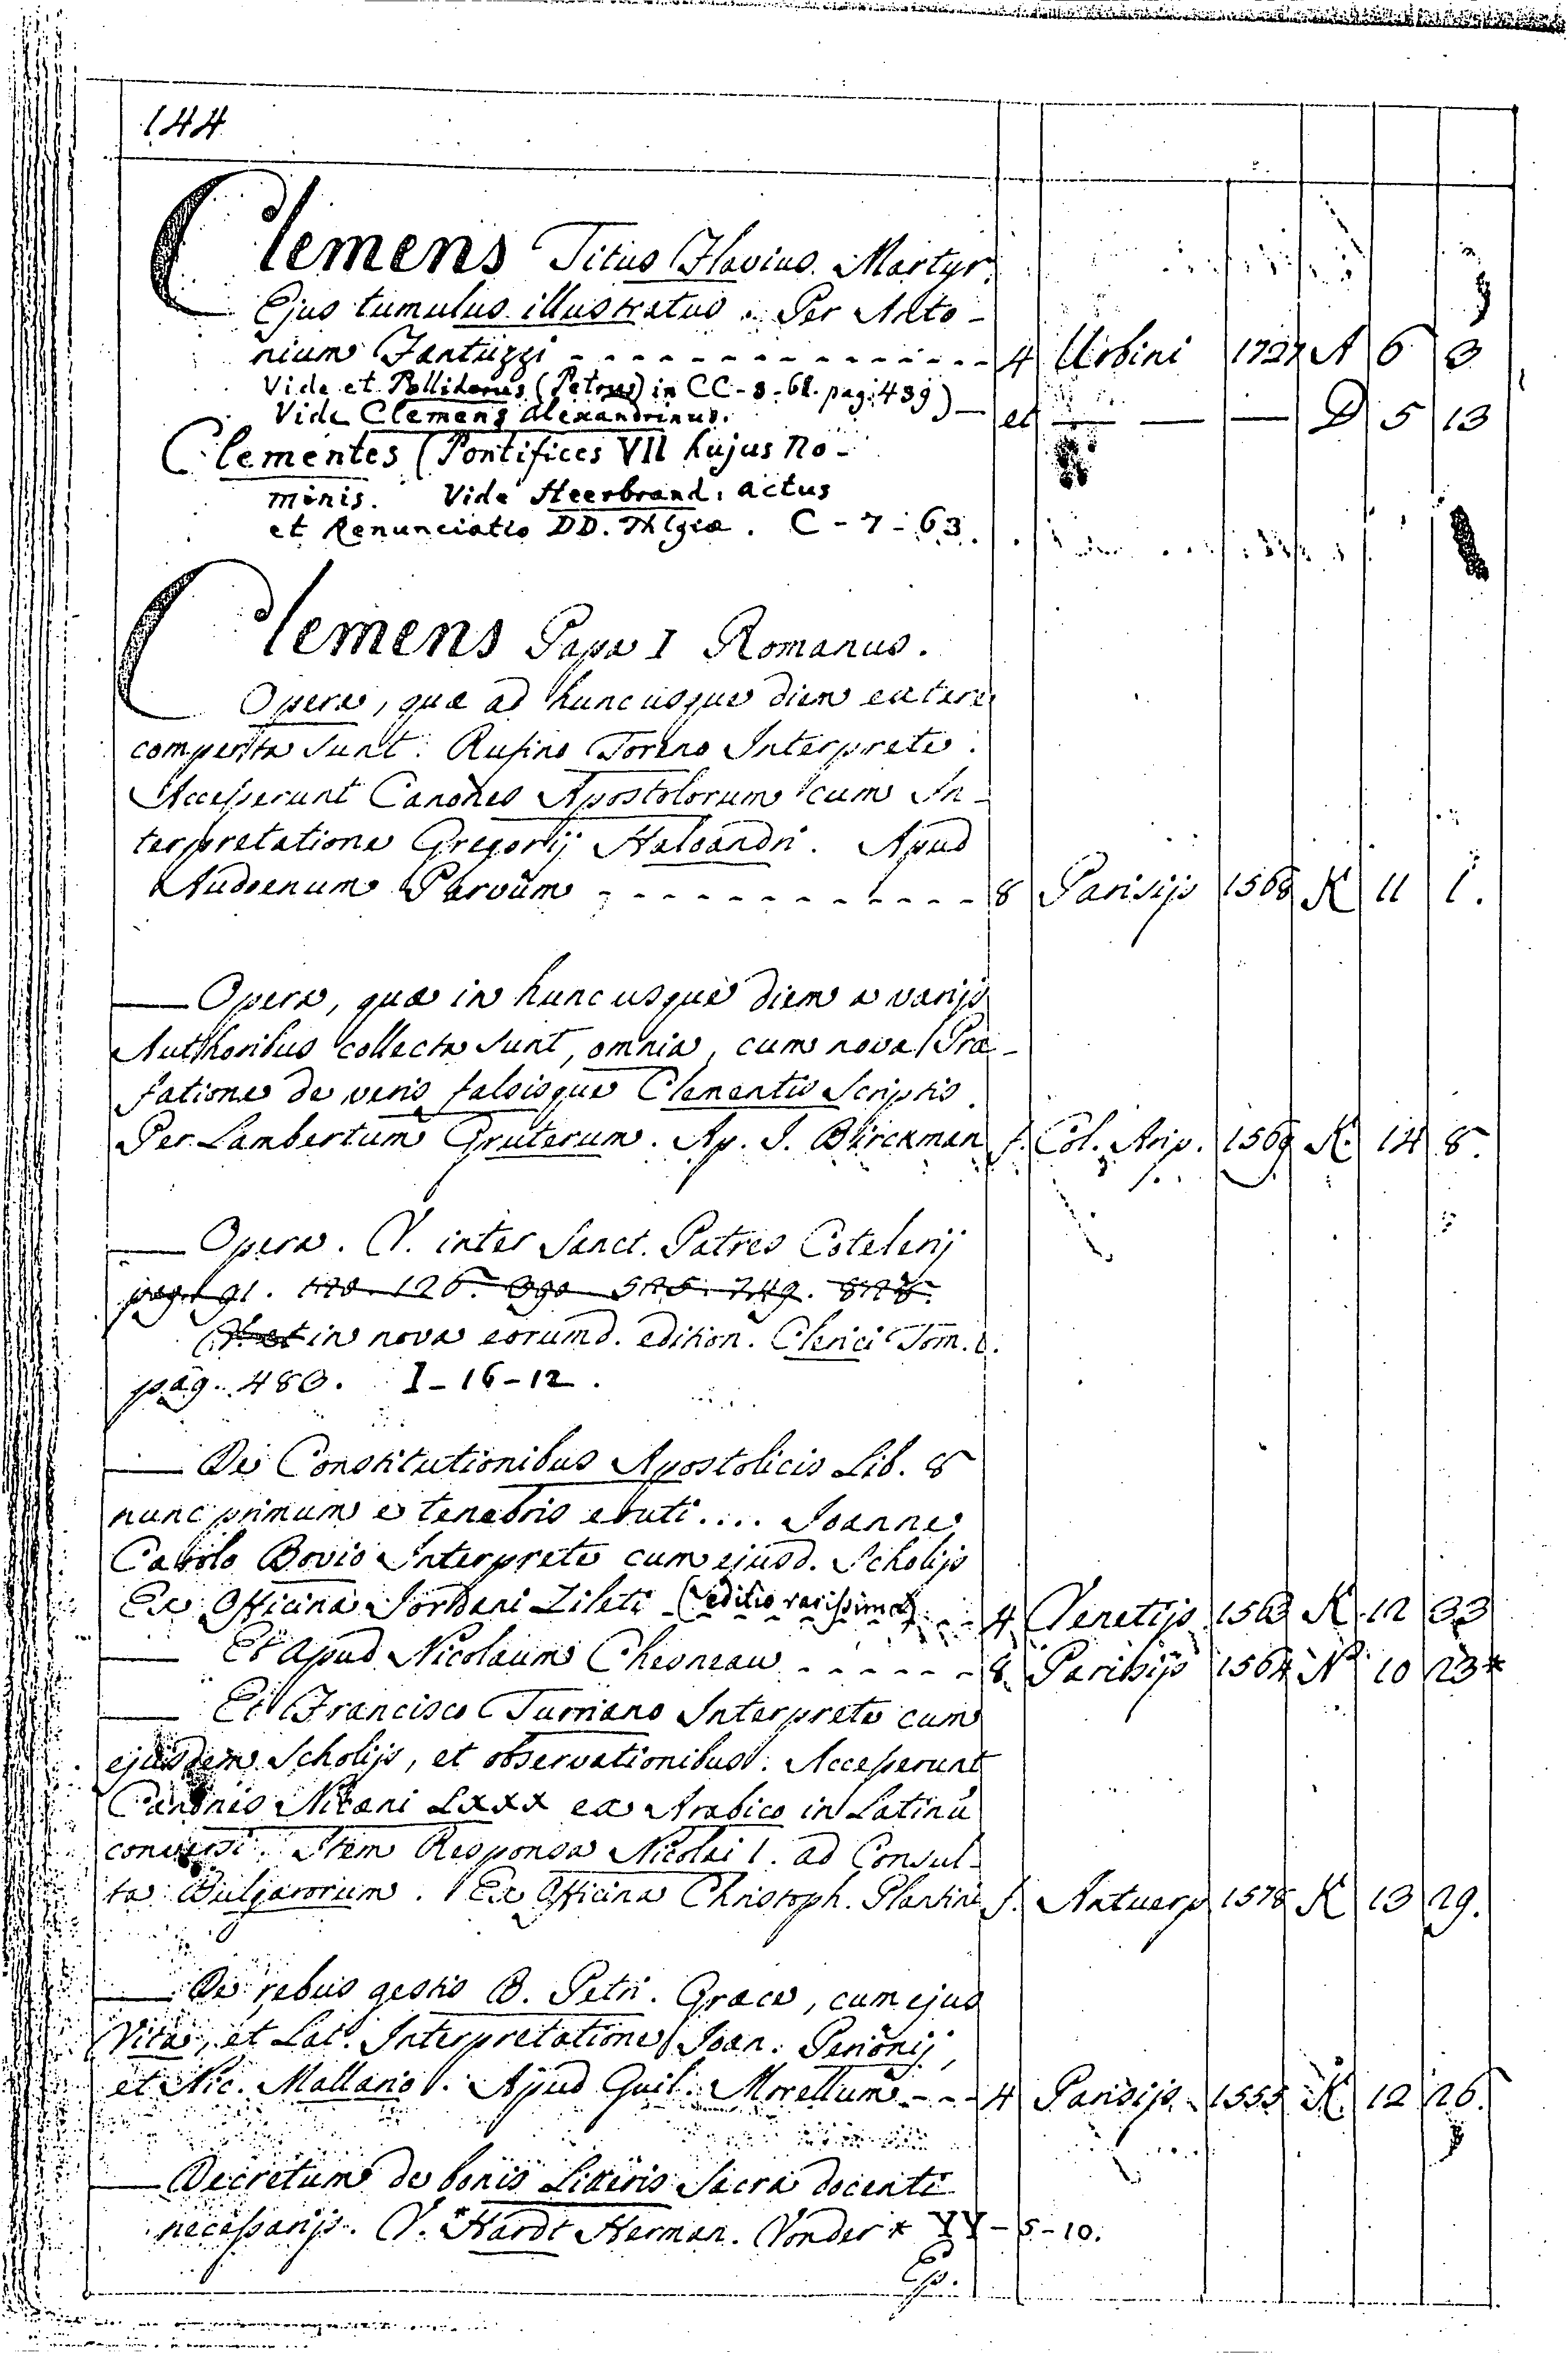 144
Clemens Titus Flavius. Martyr.
Ejus tumulus illustratus. Per Anto-
nium Fantuzzi - - - - - - - - - - - - - - - 4 Urbini 1727 A 6 3
Vide et Pollidorus (Petrus) in CC-3-62. pag: 439) — et — — — D 5 13
Vide Clemens Alexandrinus.
Clementes (Pontifices VII hujus no-
minis. Vide Heerbrand: actus
et Renunciatio DD. Thlgiæ. C-7-63.
Clemens Papa I Romanus.
Opera, quæ ad hunc usque diem extare
comperta sunt. Rufino Torino Interprete.
Accesserunt Canones Apostolorum cum In-
terpretatione Gregorij Haloandri. Apud
Audoenum Parvum - - - - - - - - - - - - 8 Parisijs 1568 K 11 1.
— Opera, quæ in hunc usque diem a varijs
Authoribus collecta sunt, omnia, cum nova Præ-
fatione de veris falsisque Clementis Scriptis.
Per Lambertum Gruterum. Ap. J. Birckman f. Col. Arip. 1569 K. 14 8.
— Opera. V. inter Sanct. Patres Cotelerij
pag. 91. 126. 749.
V. et in nova eorumd. edition. Clerici Tom. 1.
pag. 480. I-16-12.
— De Constitutionibus Apostolicis Lib. 8
nunc primum e tenebris eruti.... Joanne
Carolo Bovio Interprete cum ejusd. Scholijs
Ex Officina Jordani Zileti (editio rarissima) - - 4 Venetijs 1563 K 12 33
— Et apud Nicolaum Chesneau - - - - - - 8. Parisijs 1564 N 10 23*
— Et Francisco Turriano Interprete cum
ejusdem Scholijs, et observationibus. Accesserunt
Canones Nicæni LXXX ex Arabico in Latinū
conversi. Item Responsa Nicolai I. ad Consul-
ta Bulgarorum. Ex Officina Christoph. Plantini f. Antuerp 1578 K 13 29.
— De rebus gestis B. Petri. Græce, cum ejus
Vita, et Lat. Interpretatione Joan. Perionij,
et Nic. Mallario. Apud Guil. Morellum - - - 4 Parisijs. 1555 K. 12 26.
— Decretum de bonis Literis Sacra docenti
necessarijs. V. Hardt Herman. Vonder * YY-5-10.
Ep.